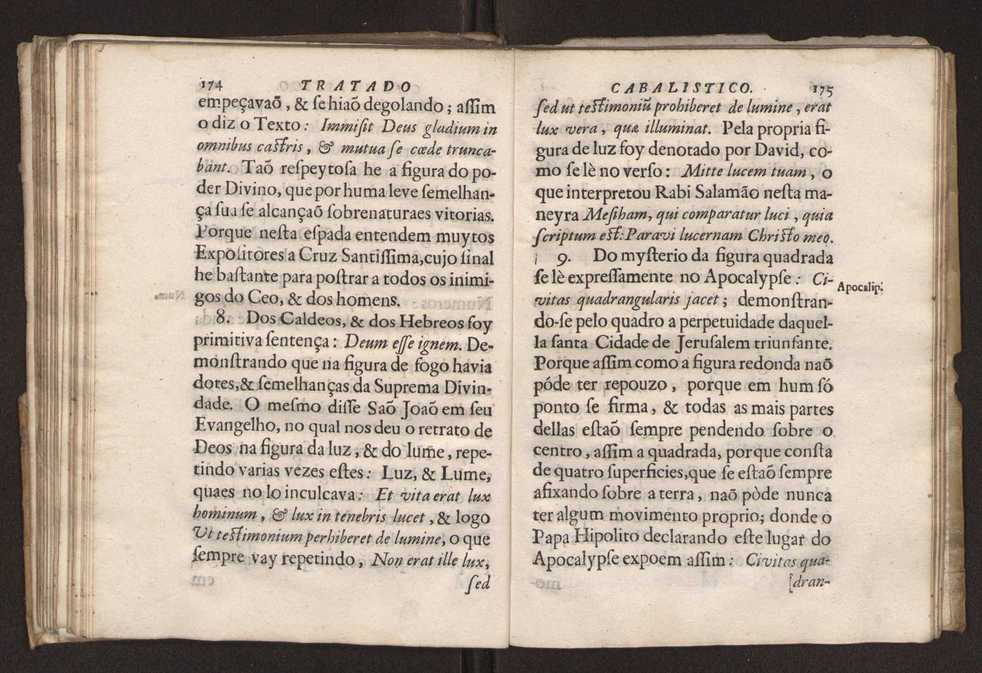 174 TRATADO
empeçavaõ, & se hiaõ degolando; assim
o diz o Texto: Immisit Deus gladium in
omnibus castris, & mutua se cæde trunca-
bant. Taõ respeytosa he a figura do po-
der Divino, que por huma leve semelhan-
ça sua se alcançaõ sobrenaturaes vitorias.
Porque nesta espada entendem muytos
Expositores a Cruz Santissima, cujo sinal
he bastante para postrar a todos os inimi-
gos do Ceo, & dos homens.
8. Dos Caldeos, & dos Hebreos foy
primitiva sentença: Deum esse ignem. De-
monstrando que na figura de fogo havia
dotes, & semelhanças da Suprema Divin-
dade. O mesmo disse Saõ Joaõ em seu
Evangelho, no qual nos deu o retrato de
Deos na figura da luz, & do lume, repe-
tindo varias vezes estes: Luz, & Lume,
quaes no lo inculcava: Et vita erat lux
hominum, & lux in tenebris lucet, & logo
Ut testimonium perhiberet de lumine, o que
sempre vay repetindo, Non erat ille lux,
sed
CABALISTICO. 175
sed ut testimoniũ prohiberet de lumine, erat
lux vera, quæ illuminat. Pela propria fi-
gura de luz foy denotado por David, co-
mo se lè no verso: Mitte lucem tuam, o
que interpretou Rabi Salamão nesta ma-
neyra Mesiham, qui comparatur luci, quia
scriptum est: Paravi lucernam Christo meo.
9. Do mysterio da figura quadrada
se lè expressamente no Apocalypse: Ci-
vitas quadrangularis jacet; demonstran-
do-se pelo quadro a perpetuidade daquel-
la santa Cidade de Jerusalem triunfante.
Porque assim como a figura redonda naõ
póde ter repouzo, porque em hum só
ponto se firma, & todas as mais partes
dellas estaõ sempre pendendo sobre o
centro, assim a quadrada, porque consta
de quatro superficies, que se estaõ sempre
afixando sobre a terra, naõ pòde nunca
ter algum movimento proprio; donde o
Papa Hipolito declarando este lugar do
Apocalypse expoem assim: Civitas qua-
[dran-
Apocalip.